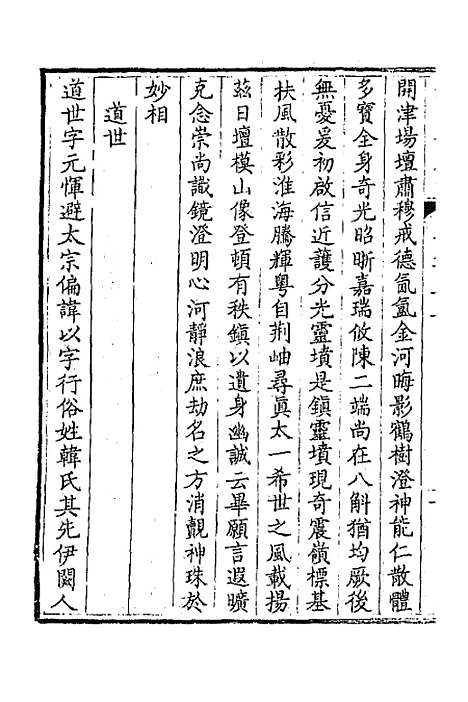 開津場壇肅穆戒德氤氳金河晦影鶴樹澄神能仁散體
多寶全身奇光昭晰嘉瑞攸陳二端尚在八斛猶均厥後
無憂爰初啟信近護分光靈墳是鎮靈墳現奇震嶺標基
扶風散彩淮海騰輝粤自荆岫尋眞太一希世之風載揚
茲日壇模山像登頓有秩鎮以遺身幽誠云畢願言遐曠
克念崇尚識鏡澄明心河靜浪庶劫名之方消覿神珠於
妙相
道世
道世字元惲避太宗偏諱以字行俗姓韓氏其先伊闕人